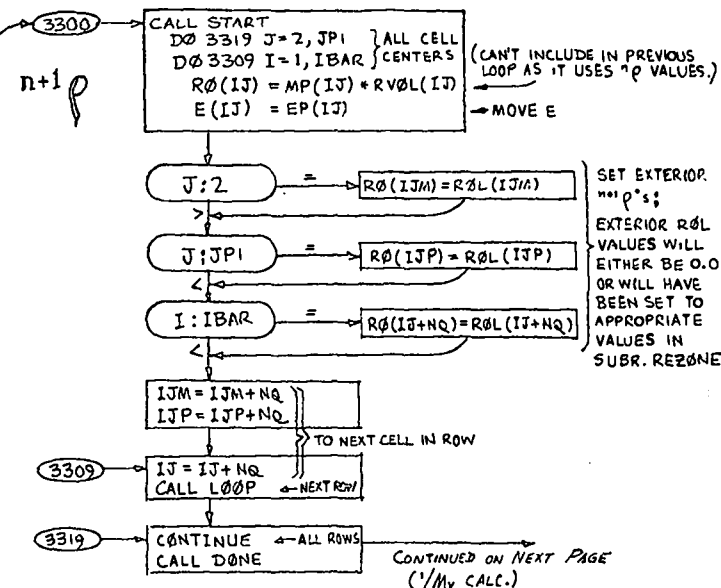 3300
CALL START
DØ 3319 J=2, JP1
DØ 3309 I=1, IBAR
ALL CELL
CENTERS
RØ(IJ) = MP(IJ) * RVØL(IJ)
E(IJ) = EP(IJ)
(CAN'T INCLUDE IN PREVIOUS
LOOP AS IT USES ⁿρ VALUES.)
MOVE E
n+1 ρ
J:2
=
RØ(IJM)=RØL(IJM)
>
J:JP1
=
RØ(IJP)=RØL(IJP)
<
I:IBAR
=
RØ(IJ+NQ)=RØL(IJ+NQ)
<
SET EXTERIOR
ⁿ⁺¹ρ's;
EXTERIOR RØL
VALUES WILL
EITHER BE 0.0
OR WILL HAVE
BEEN SET TO
APPROPRIATE
VALUES IN
SUBR. REZONE
IJM=IJM+NQ
IJP=IJP+NQ
TO NEXT CELL IN ROW
3309
IJ=IJ+NQ
CALL LØØP ←NEXT ROW
3319
CØNTINUE ←ALL ROWS
CALL DØNE
CONTINUED ON NEXT PAGE
(1/Mv CALC.)